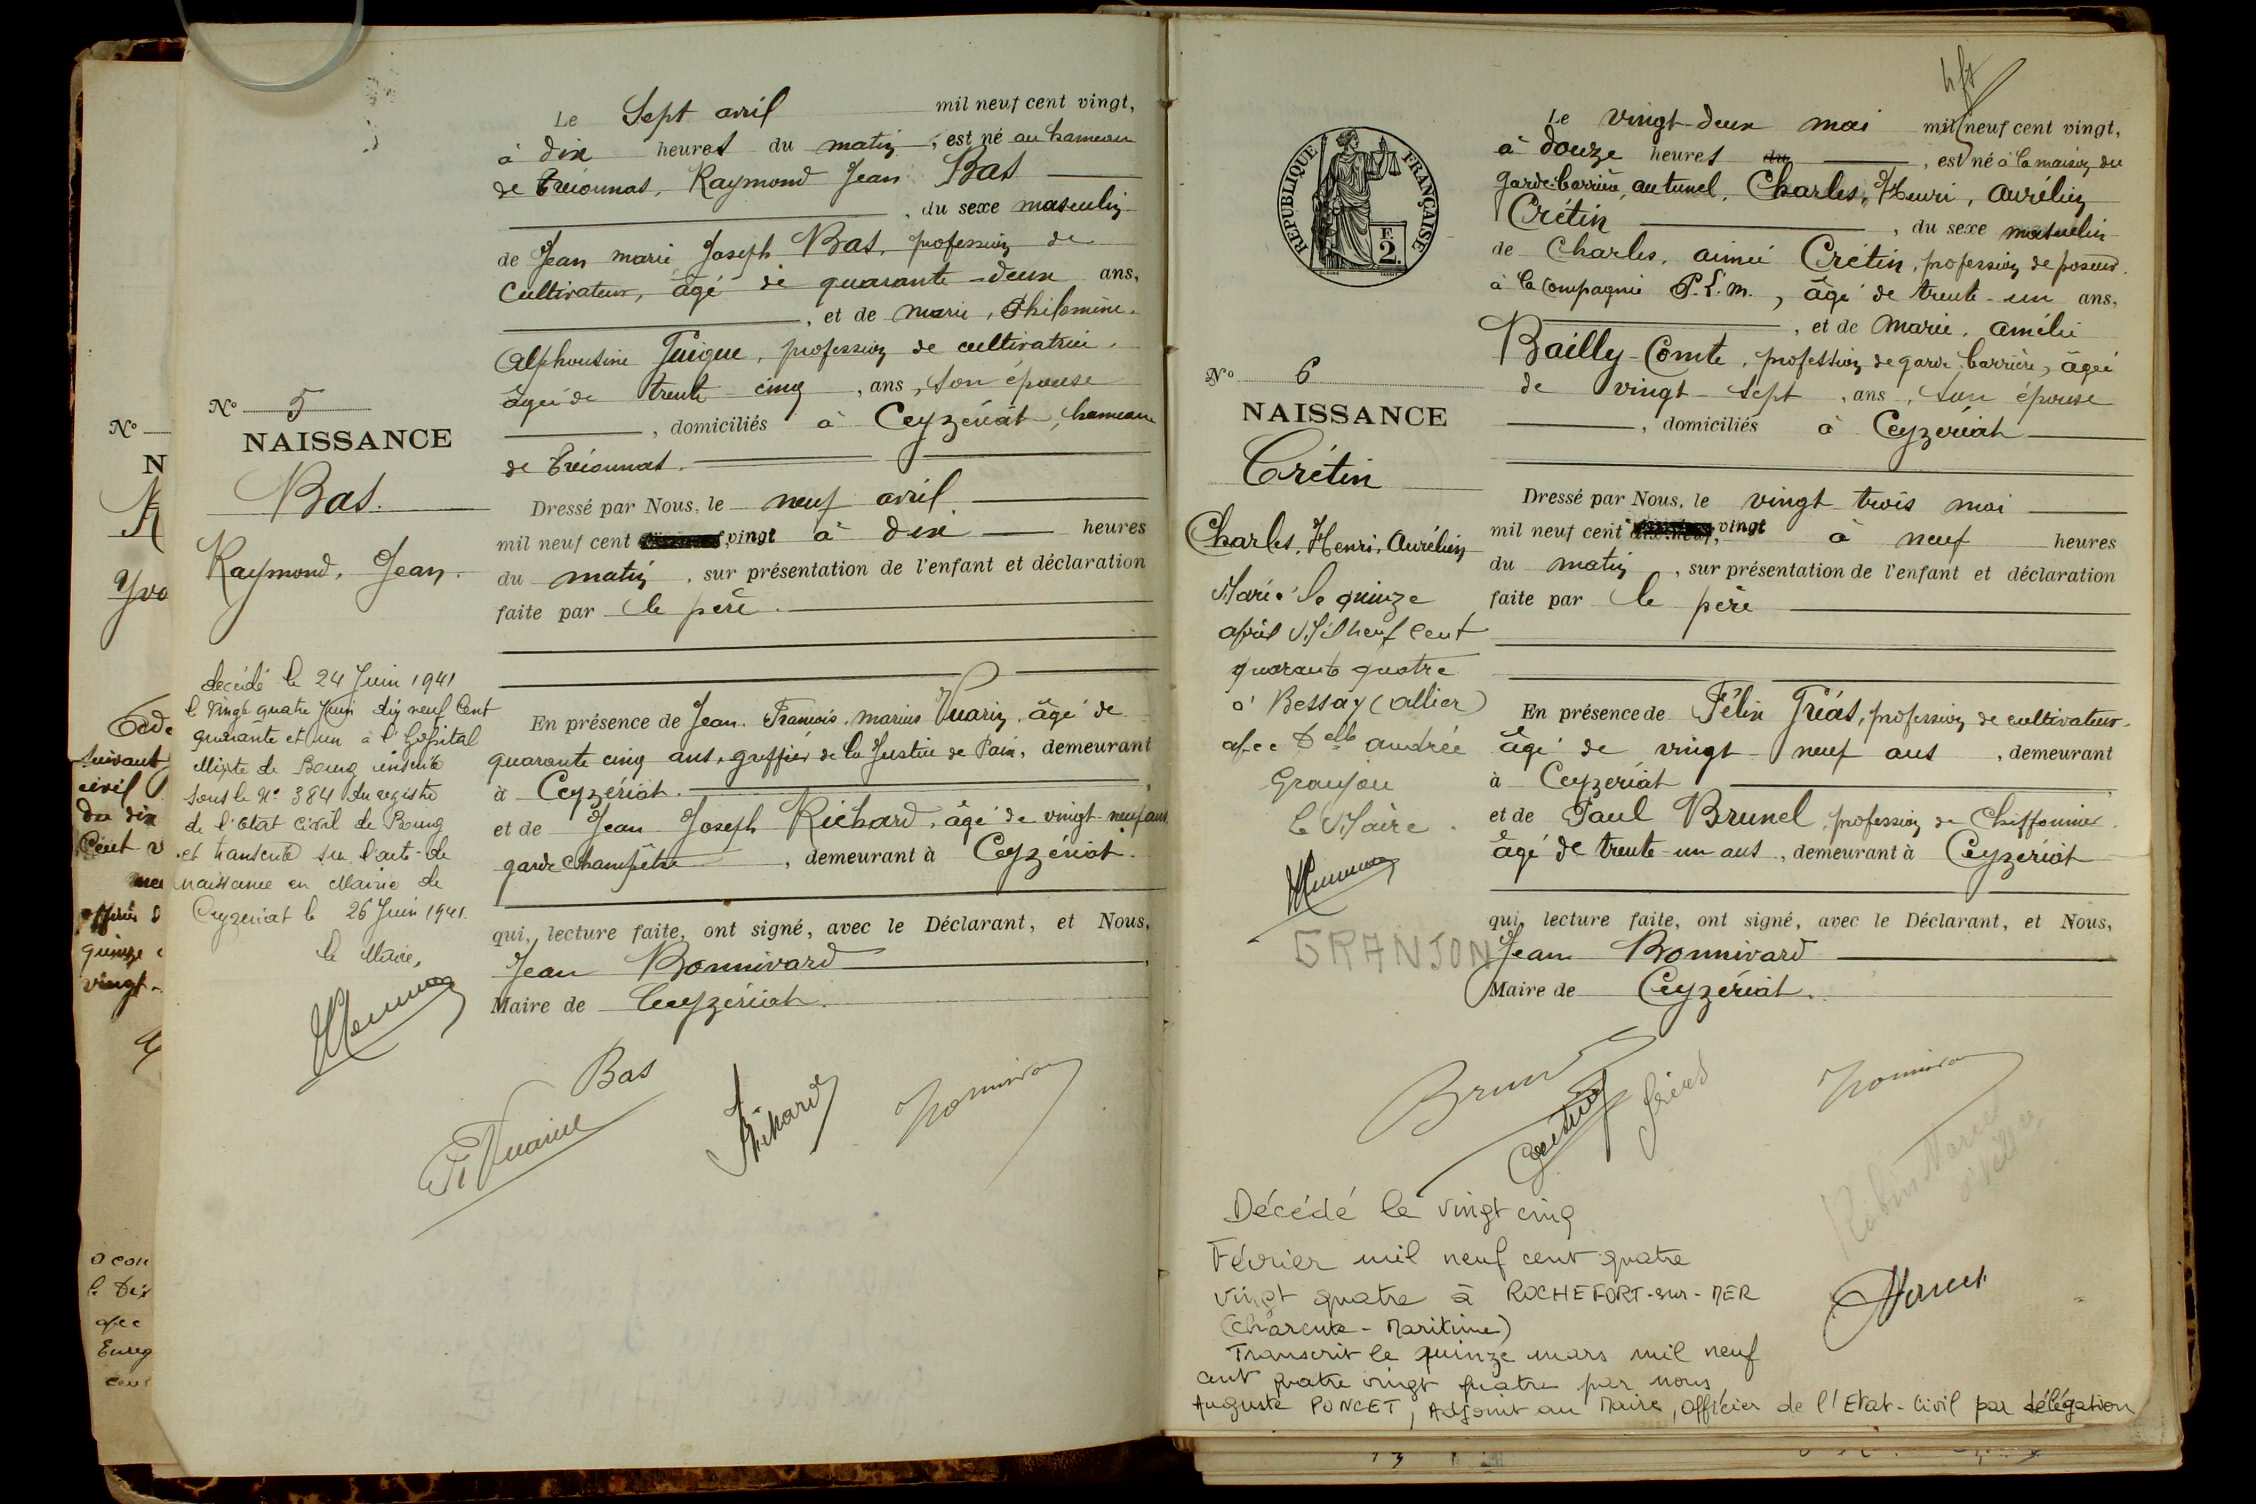 Nº 5
NAISSANCE
Bas.
Raymond, Jean.
décédé le 24 Juin 1941
le vingt quatre Juin dix neuf Cent
quarante et un à l'hôpital
Mixte de Bourg inscrit
sous le Nº 384 du registre
de l'Etat Civil de Bourg
et transcrit sur l'acte de
naissance en Mairie de
Ceyzeriat le 26 Juin 1941.
le Maire,
Le Sept avril mil neuf cent vingt,
à dix heures du matin, est né au hameau
de Treconnas, Raymond Jean Bas
, du sexe masculin
de Jean marie Joseph Bas, profession de
Cultivateur, âgé de quarante-deux ans,
, et de marie, Philomène,
Alphonsine Guigue, profession de cultivatrice,
âgée de trente cinq , ans, son épouse
, domiciliés à Ceyzériat, hameau
de Treconnas.
Dressé par Nous, le neuf avril
mil neuf cent vingt à dix heures
du matin , sur présentation de l'enfant et déclaration
faite par le père.
En présence de Jean, François, marius Vuarin, âgé de
quarante cinq ans, greffier de la Justice de Paix, demeurant
à Ceyzériat.
et de Jean Joseph Richard, âgé de vingt-neuf ans,
garde champêtre , demeurant à Ceyzériat.
qui, lecture faite, ont signé, avec le Déclarant, et Nous,
Jean Bonnivard
Maire de Ceyzériat.
Bas
Vuarin
Richard
Bonnivard
Nº
N
Yvo
suivant
civil
du dix
Cent v
quinze
vingt-
le Dix
avec
Enreg
RÉPUBLIQUE FRANÇAISE
2F.
Nº 6
NAISSANCE
Crétin
Charles, Henri, Aurélien
Marié le quinze
avril Mil neuf Cent
quarante quatre
à Bessay (Allier)
avec Delle Andrée
Granjon
Le Maire.
GRANJON
Le vingt-deux mai mil neuf cent vingt,
à douze heures du , est né à la maison du
garde-barrière, au tunel, Charles, Henri, Aurélien
Crétin , du sexe masculin
de Charles, aimé Crétin, profession de poseur
à la Compagnie P.L.M. , âgé de trente-un ans,
, et de Marie, Amélie
Bailly-Comte, profession de garde barrière, âgée
de vingt-sept , ans, son épouse
, domiciliés à Ceyzériat
Dressé par Nous, le vingt trois mai
mil neuf cent dix-neuf, vingt à neuf heures
du matin , sur présentation de l'enfant et déclaration
faite par le père
En présence de Félix Gréas, profession de cultivateur
âgé de vingt-neuf ans , demeurant
à Ceyzériat
et de Paul Brunel, profession de Chiffonnier
âgé de trente-un ans , demeurant à Ceyzériat
qui, lecture faite, ont signé, avec le Déclarant, et Nous,
Jean Bonnivard
Maire de Ceyzériat.
Brunel
Crétin
Gréas
Bonnivard
Décédé le vingt cinq
Février mil neuf cent quatre
vingt quatre à ROCHEFORT-sur-MER
(Charente-Maritime)
Transcrit le quinze mars mil neuf
cent quatre vingt quatre par nous
Auguste PONCET, Adjoint au Maire, officier de l'Etat-Civil par délégation